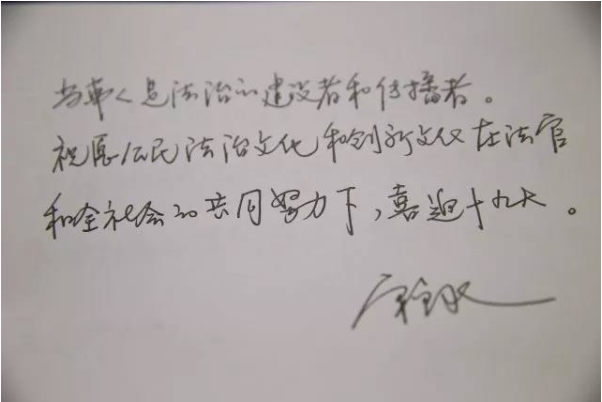 当事人是法治的建设者和传播者。
祝愿公民法治文化和创新文化在法官
和全社会的共同努力下,喜迎十九大。